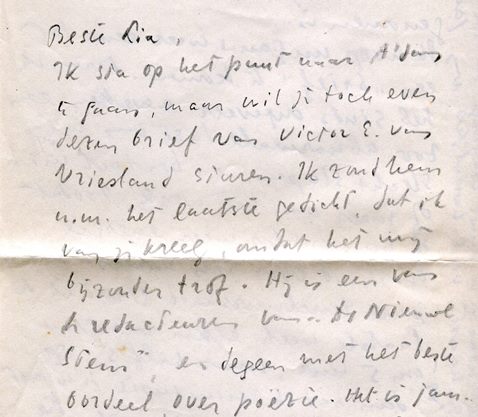 Beste Lia,
Ik sta op het punt naar A'dam
te gaan, maar wil je toch even
dezen brief van Victor E. van
Vriesland sturen. Ik zond hem
n.m. het laatste gedicht, dat ik
van je kreeg, omdat het mij
bijzonder trof. Hij is een van
de redacteuren van "De Nieuwe
Stem", en degeen met het beste
oordeel over poëzie. Het is jam-